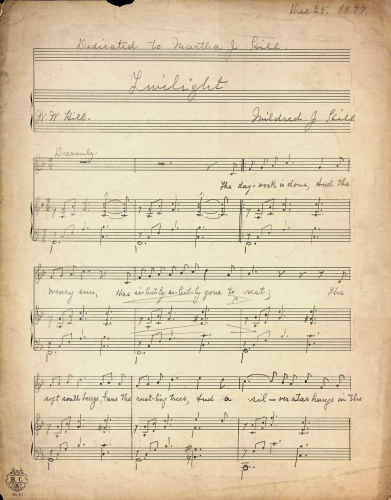 Dec 25. 1877.
Dedicated to Martha J Hill.
Twilight
W W Hill. Mildred J Hill
Dreamily.
The day's work is done, And the
weary sun, Has si-lent-ly si-lent-ly gone to rest;
The
soft south breeze, fans the rust-ling trees, And a sil-ver star hangs in the
B.C.